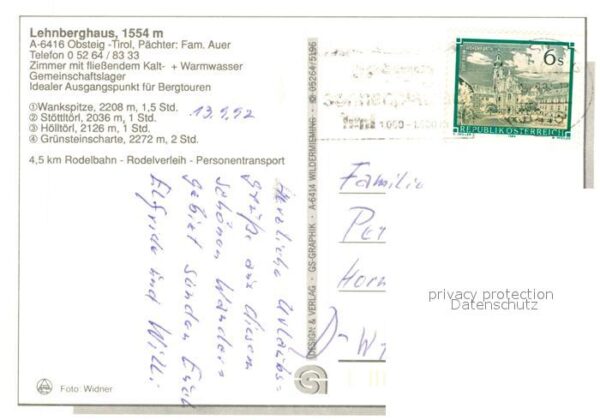 Lehnberghaus, 1554 m
A-6416 Obsteig -Tirol, Pächter: Fam. Auer
Telefon 0 52 64 / 83 33
Zimmer mit fließendem Kalt- + Warmwasser
Gemeinschaftslager
Idealer Ausgangspunkt für Bergtouren
①Wankspitze, 2208 m, 1,5 Std.
② Stöttltörl, 2036 m, 1 Std.
③ Hölltörl, 2126 m, 1 Std.
④ Grünsteinscharte, 2272 m, 2 Std.
4,5 km Rodelbahn - Rodelverleih - Personentransport
13.9.92
Herzliche Urlaubs-
grüße aus diesem
schönen Wander-
gebiet senden Euch
Elfride und Willi
Foto: Widner
DESIGN & VERLAG · GS-GRAPHIK · A-6414 WILDERMIEMING · ✆ 05264/5196
6s
REPUBLIK ÖSTERREICH
Familie
Pet
Horn
D-
privacy protection
Datenschutz